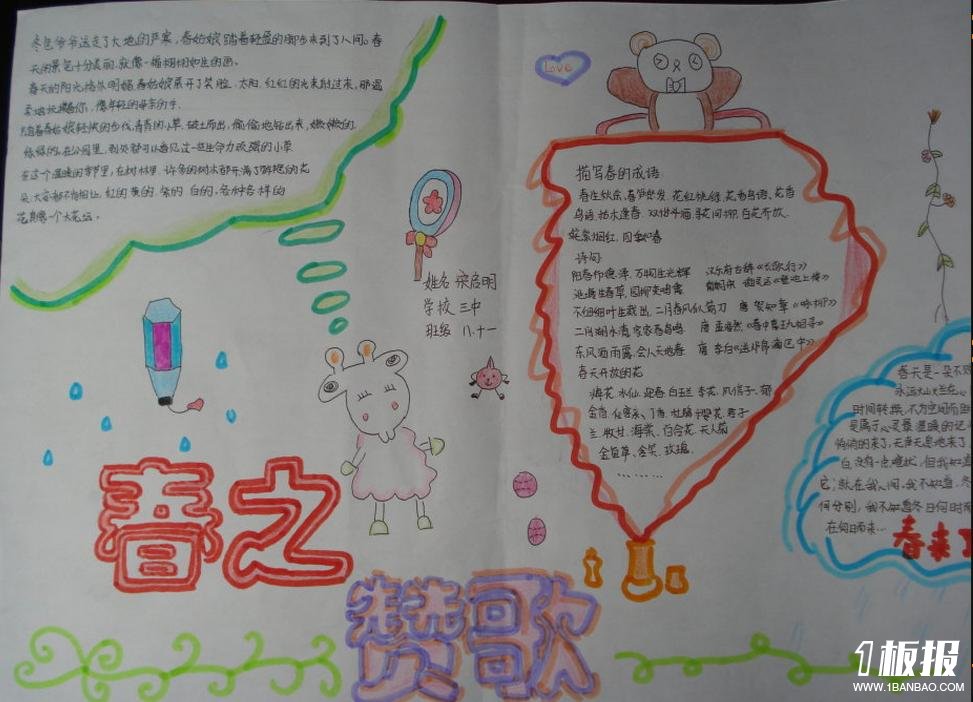 冬爷爷送走了大地的严寒，春姑娘踏着轻盈的脚步来到了人间。春
天的景色十分美丽，就像一幅栩栩如生的画。
春天的阳光格外明媚，春姑娘展开了笑脸，太阳，红红的光束射过来，那温
柔地抚摸你，像年轻的母亲的手
踏着春姑娘轻快的步伐，青青的小草，破土而出，偷偷地钻出来，嫩嫩的，
绿绿的。在公园里，到处都可以看见这一些生命力顽强的小草
在这个温暖的季节里，在树林里，许多的树木都开满了鲜艳的花
朵，大家都不肯相让，红的 黄的 紫的 白的，各种各样的
花真像一个大花坛。
Love
姓名 宋启明
学校 三中
班级 八.十一
描写春的成语
春生秋杀、春笋怒发、花红柳绿、花香鸟语、花香
鸟语、枯木逢春、双柑斗酒、寻花问柳、百花齐放、
姹紫嫣红、四季如春
诗句
阳春布德泽，万物生光辉 汉乐府古辞《长歌行》
池塘生春草，园柳变鸣禽 南朝宋 谢灵运《登池上楼》
不知细叶谁裁出，二月春风似剪刀 唐 贺知章《咏柳》
二月湖水清，家家春鸟鸣 唐 孟浩然《春中喜王九相寻》
东风洒雨露，会入天地春 唐 李白《送郄昂谪巴中》
春天开放的花
梅花、水仙、迎春、白玉兰、李花、风信子、郁
金香、仙客来、丁香、杜鹃、樱花、君子
兰、牡丹、海棠、百合花、天人菊
金鱼草、含笑、玫瑰、
………
春天是一朵不
永远灿烂在心
时间转换，不为空间而
是属于心灵最温暖的记
悄悄的来了，无声无息地来了
白，没有一点喧扰，但我知道
它；就在我人间，我不知道，冬
何分别，我不知道冬日何时
在何日而来…
春来了
春之
赞歌
1板报
WWW.1BANBAO.COM